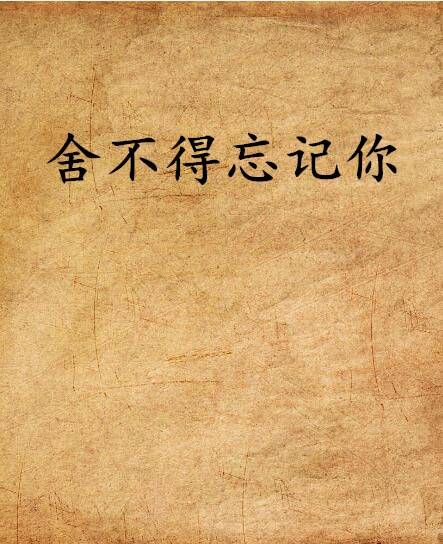 舍不得忘记你